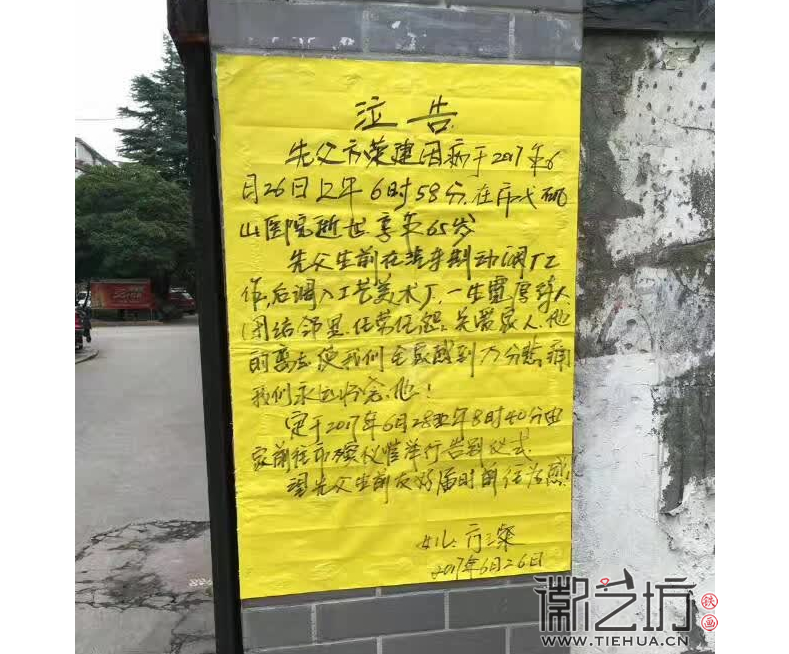 泣告
先父方荣建因病于2017年6
月26日上午6时58分.在市弋矶
山医院逝世享年65岁
先父生前在 动调厂工
作,后调入工艺美术厂.一生宽厚待人
团结邻里.任劳任怨.关爱家人.他
的离去使我们全家感到万分悲痛
我们永远怀念他!
定于2017年6月28日上午8时40分由
家前往市殡仪馆举行告别仪式
望先父生前友好届时前往为感!
女儿:方 燦
2017年6月26日
徽艺坊
铁画
WWW.TIEHUA.CN